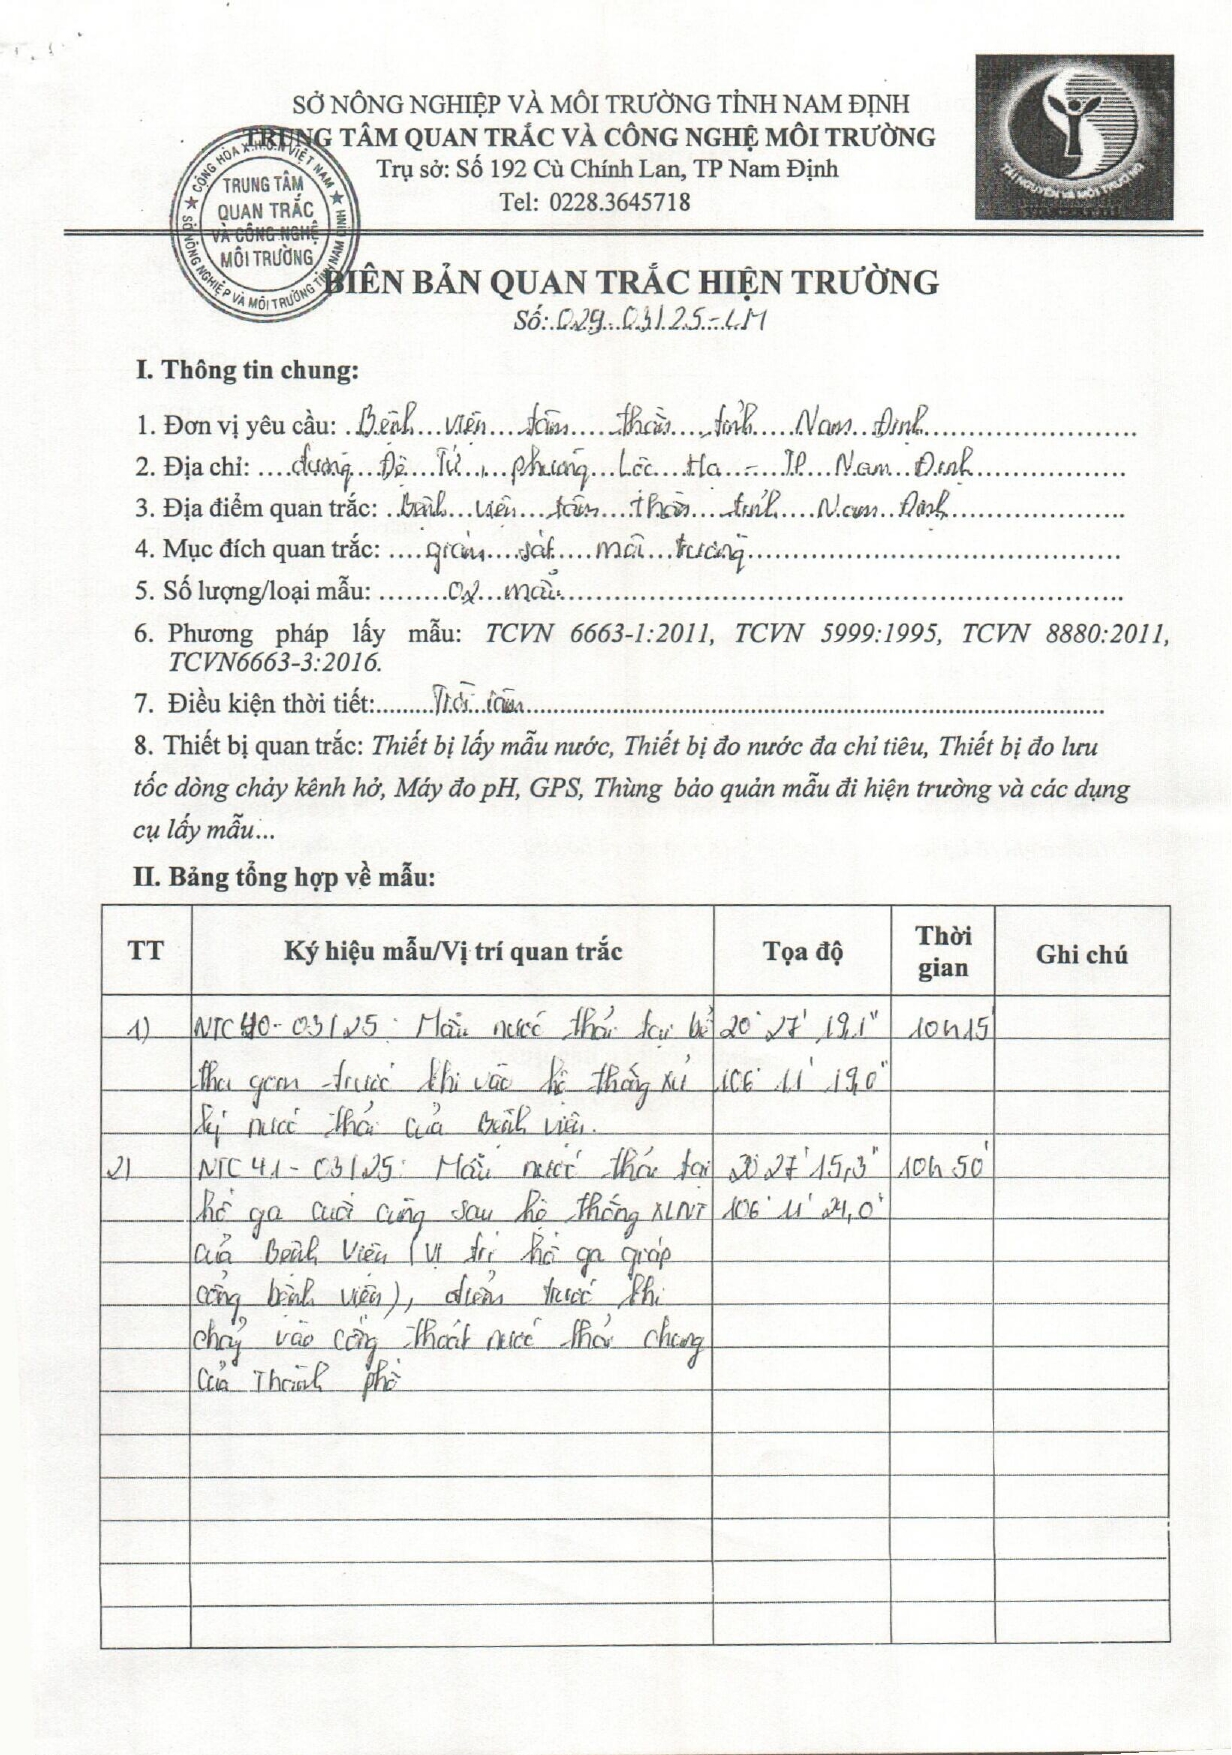 SỞ NÔNG NGHIỆP VÀ MÔI TRƯỜNG TỈNH NAM ĐỊNH
TRUNG TÂM QUAN TRẮC VÀ CÔNG NGHỆ MÔI TRƯỜNG
Trụ sở: Số 192 Cù Chính Lan, TP Nam Định
Tel: 0228.3645718
TÀI NGUYÊN VÀ MÔI TRƯỜNG
CỘNG HÒA X.H.C.N VIỆT NAM
TRUNG TÂM
QUAN TRẮC
VÀ CÔNG NGHỆ
MÔI TRƯỜNG
SỞ NÔNG NGHIỆP VÀ MÔI TRƯỜNG TỈNH NAM ĐỊNH
BIÊN BẢN QUAN TRẮC HIỆN TRƯỜNG
Số: 029-03/25-LM
I. Thông tin chung:
1. Đơn vị yêu cầu: Bệnh viện tâm thần tỉnh Nam Định
2. Địa chỉ: đường Đệ Tứ, phường Lộc Hạ - TP Nam Định
3. Địa điểm quan trắc: Bệnh viện tâm thần tỉnh Nam Định
4. Mục đích quan trắc: giám sát môi trường
5. Số lượng/loại mẫu: 02 mẫu
6. Phương pháp lấy mẫu: TCVN 6663-1:2011, TCVN 5999:1995, TCVN 8880:2011,
TCVN6663-3:2016.
7. Điều kiện thời tiết: Trời râm
8. Thiết bị quan trắc: Thiết bị lấy mẫu nước, Thiết bị đo nước đa chỉ tiêu, Thiết bị đo lưu
tốc dòng chảy kênh hở, Máy đo pH, GPS, Thùng bảo quản mẫu đi hiện trường và các dụng
cụ lấy mẫu...
II. Bảng tổng hợp về mẫu:
TT Ký hiệu mẫu/Vị trí quan trắc Tọa độ Thời gian Ghi chú
1) NTC40-03/25: Mẫu nước thải tại bể 20° 27' 19,1" 10h15'
thu gom trước khi vào hệ thống xử 106° 11' 19,0"
lý nước thải của Bệnh viện.
2) NTC41-03/25: Mẫu nước thải tại 20° 27' 15,3" 10h50'
hố ga cuối cùng sau hệ thống XLNT 106° 11' 24,0"
của Bệnh viện (vị trí hố ga giáp
cổng bệnh viện), điểm trước khi
chảy vào cống thoát nước thải chung
của Thành phố